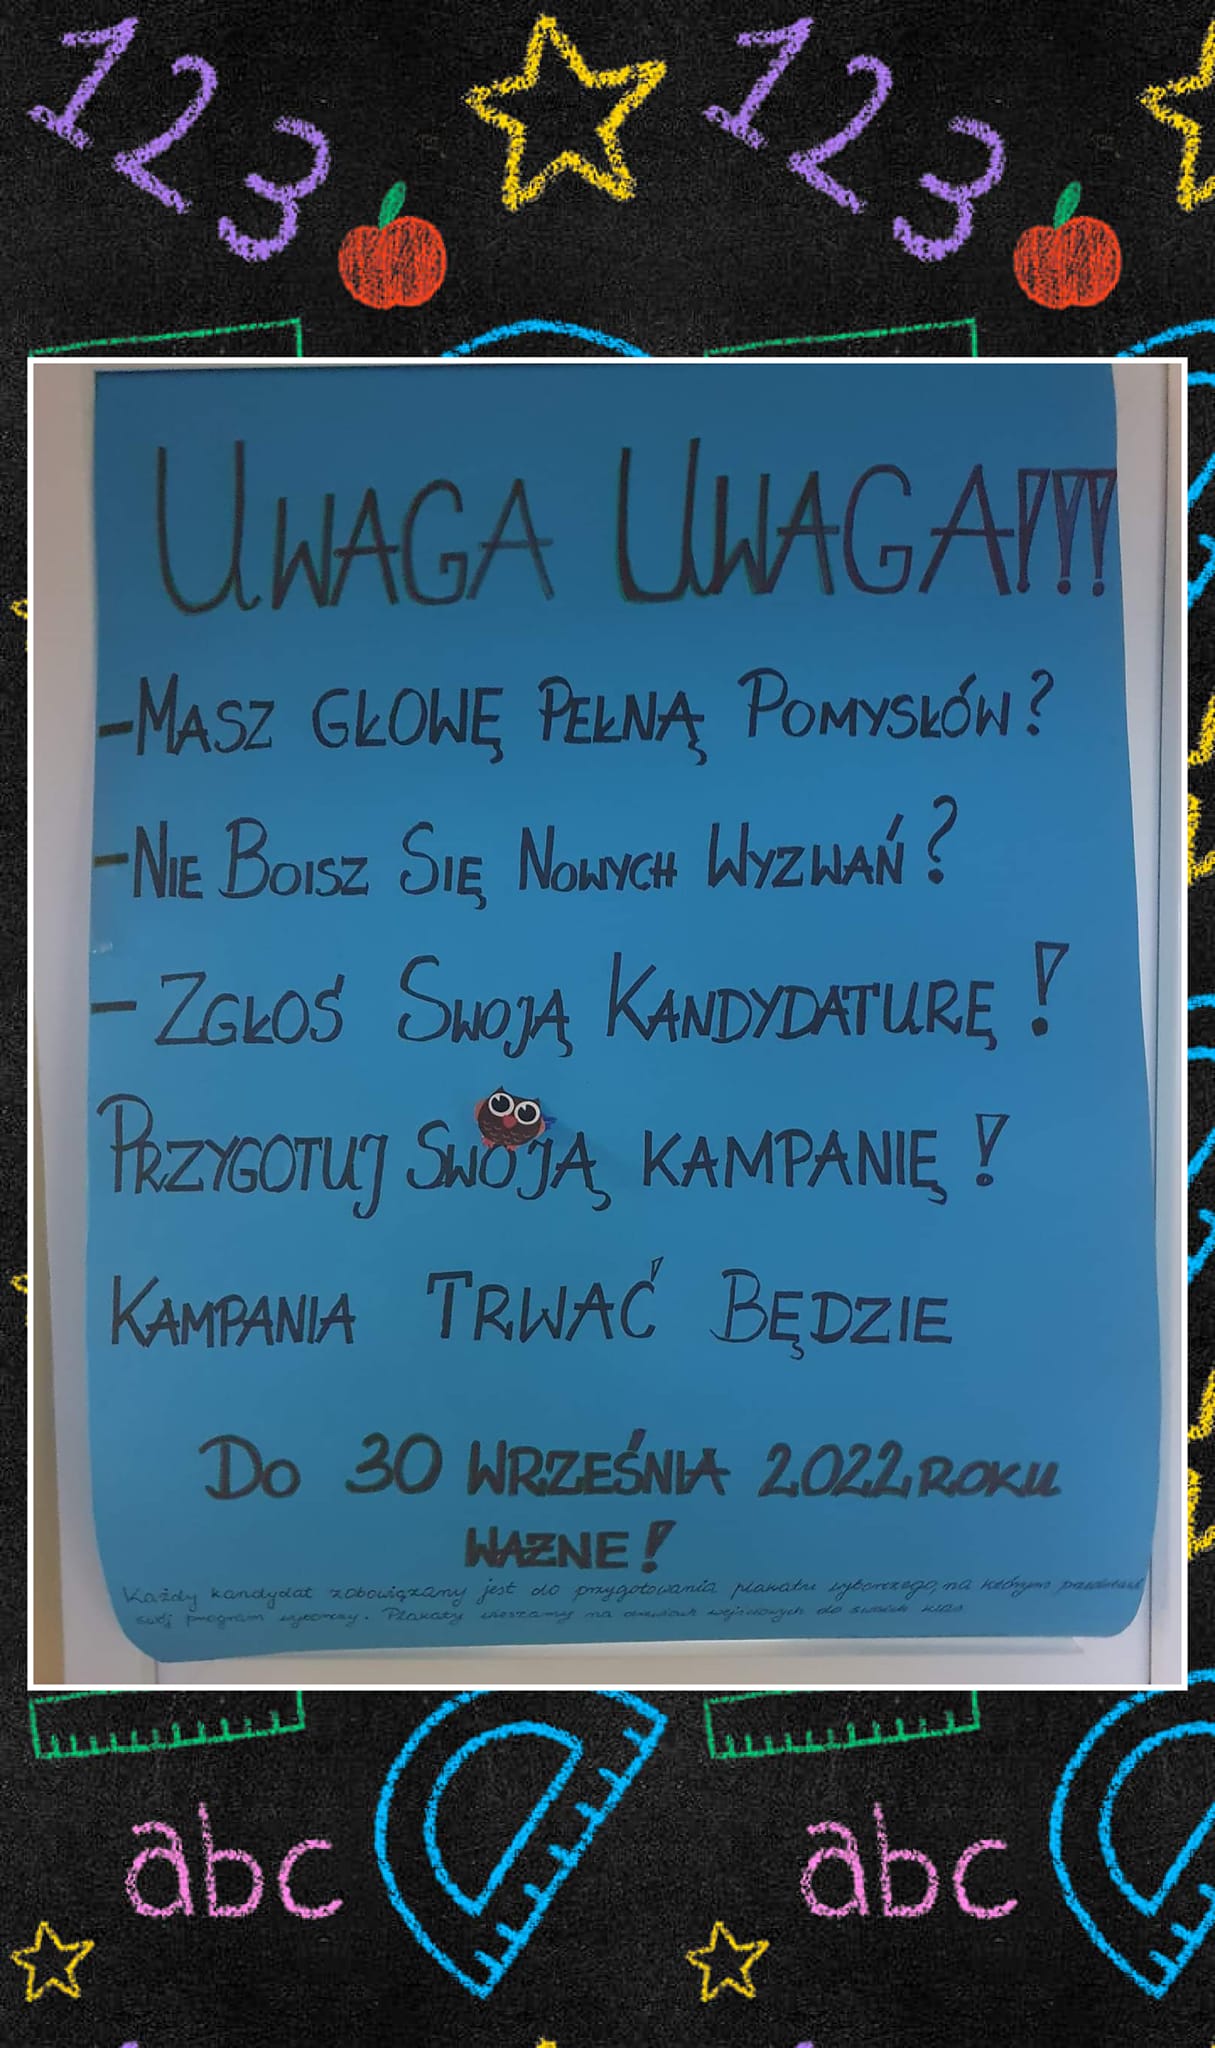 123
123
UWAGA UWAGA!!!
-MASZ GŁOWĘ PEŁNĄ POMYSŁÓW?
-NIE BOISZ SIĘ NOWYCH WYZWAŃ?
- ZGŁOŚ SWOJĄ KANDYDATURĘ!
PRZYGOTUJ SWOJĄ KAMPANIĘ!
KAMPANIA TRWAĆ BĘDZIE
DO 30 WRZEŚNIA 2022 ROKU
WAƵNE!
Każdy kandydat zobowiązany jest do przygotowania plakatu wyborczego, na którym przedstawi
swój program wyborczy. Plakaty wieszamy na drzwiach wejściowych do swoich klas
abc
abc